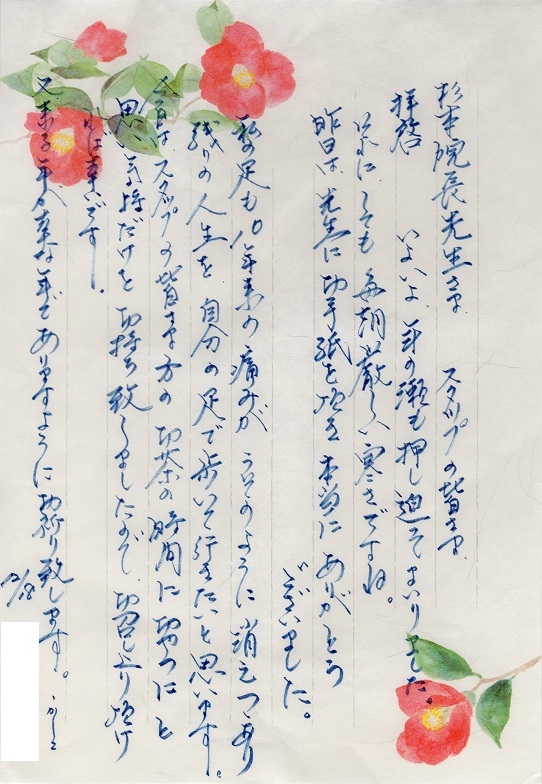 杉本院長先生さま　スタッフの皆さま
拝啓　いよいよ 年の瀬も押し迫ってまいりました。
それにしても 毎朝 厳しい寒さですね。
昨日は 先生に 御手紙を頂き 本当に ありがとう
ございました。
私の足も 10年来の 痛みが うそのように 消えつつあり
残りの人生を 自分の足で歩いて行きたいと思います。
今日は スタッフの皆さま方の 御茶の時間に 御やつにと
思い 気持だけを 御持ち致しましたので 御召し上り頂け
れば幸いです。
又 来る年が 幸な年で ありますように 御祈り致します。
かしこ
12/18